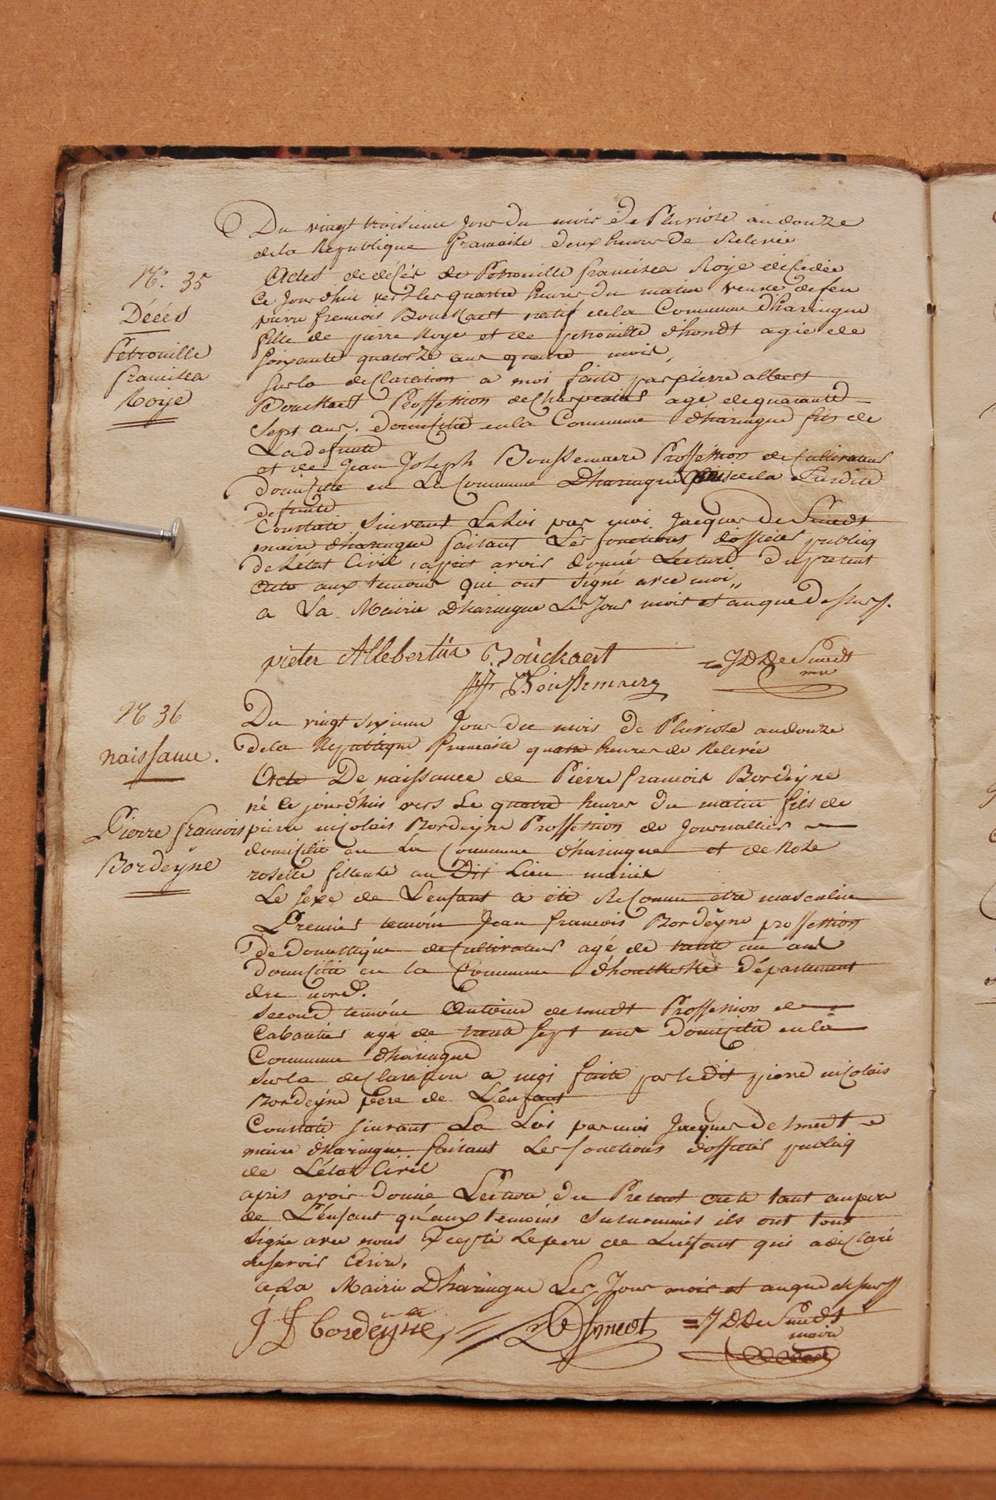 Du vingt troisieme Jour du mois de Pluviose an douze
de la Republique francaise deux heures de Relevée
N.º 35
Décés
Petronille
francisca
Roije
Actes de décés de Petronille francisca Roije decedée
Ce Jourdhuit vers les quattre heures du matin veuve de feu
pierre francois Bouckaert natif de la Commune dharingue
fille de pierre Roije et de petronille d'hondt agée de
soixante quatorze ans quattre mois,
sur la declaration a moi faite par pierre albert
Bouckaert Proffession de Charpentier agé de quarante
Sept ans. domicilié en la Commune dharingue fils de
La defunte
et de Jean Joseph Boussemaere Proffession de Cultivateur
domicilié en La Commune Dharingue de la Susdite
defunte
Constaté Suivant La Loi par moi Jacques De Smedt
maire dharingue faisant Les fonctions dofficier publiq
de Létat Civil apres avoir donné Lecture du present
acte aux temoins qui ont signé avec moi,,
a La Mairie Dharingue Les Jour mois et an que Dessus.
pieter Allebertus Bouckaert
=JDDe Smedt
mre
JJ Boussemaere
Nº 36
naissance.
Pierre francois
Bordeÿne
Du vingt sixieme Jour du mois de Pluviose an douze
de la Republique francaise quatre heures de Relevée
Acte De naissance de Pierre francois Bordeÿne
né ce jourdhui vers Le quatre heures du matin fils de
pierre nicolais Bordeÿne Proffession de Journallier
domicilié en La Commune dharingue et de Rose
rosette au Dit Lieu mariés
Le sexe de Lenfant a été Reconnu etre masculin
Premier temoin Jean francois Bordeÿne proffession
De domestique de Cultivateur agé de trente un ans
domicilié en la Commune département
du nord.
Second temoin Antoine de smedt Proffession de
Cabaretier agé de trente sept ans Domicilié en la
Commune dharingue
Sur la declaration a moi faite par ledit pierre nicolais
Bordeÿne pere de L'enfant
Constaté suivant La Loi par moi Jacques De Smedt
maire dharingue faisant Les fonctions dofficier publiq
de L'état Civil
apres avoir donné Lecture du Present acte tant au pere
de L'enfant qu'aux temoins Susnommés ils ont tout
signé avec nous Excepté Le pere de Lenfant qui a declaré
ne savoir Ecrire,
a La Mairie Dharingue Les Jour mois et an que dessus
J f bordeÿne
De Smedt
=JDDe Smedt
maire